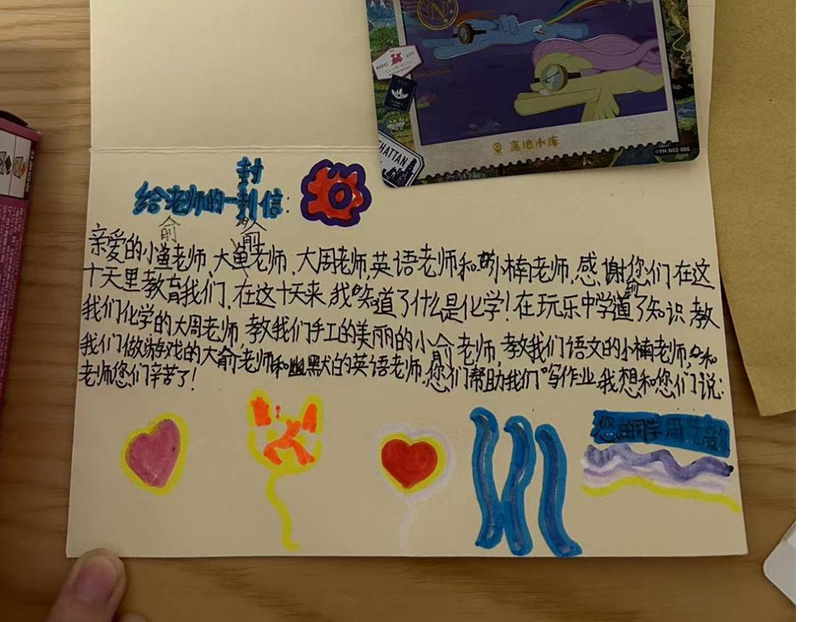 高地水库
©YH-N02-006
给老师的一封信:
亲爱的小鱼老师,大鱼老师、大周老师,英语老师和小楠老师,感谢您们在这
俞 俞
十天里教育我们,在这十天来,我知道了什么是化学!在玩乐中学到了知识,教
我们化学的大周老师,教我们手工的美丽的小俞老师,教我们语文的小楠老师,和
我们做游戏的大俞老师和幽默的英语老师,您们帮助我们写作业,我想和您们说:
老师您们辛苦了!
您的同学周